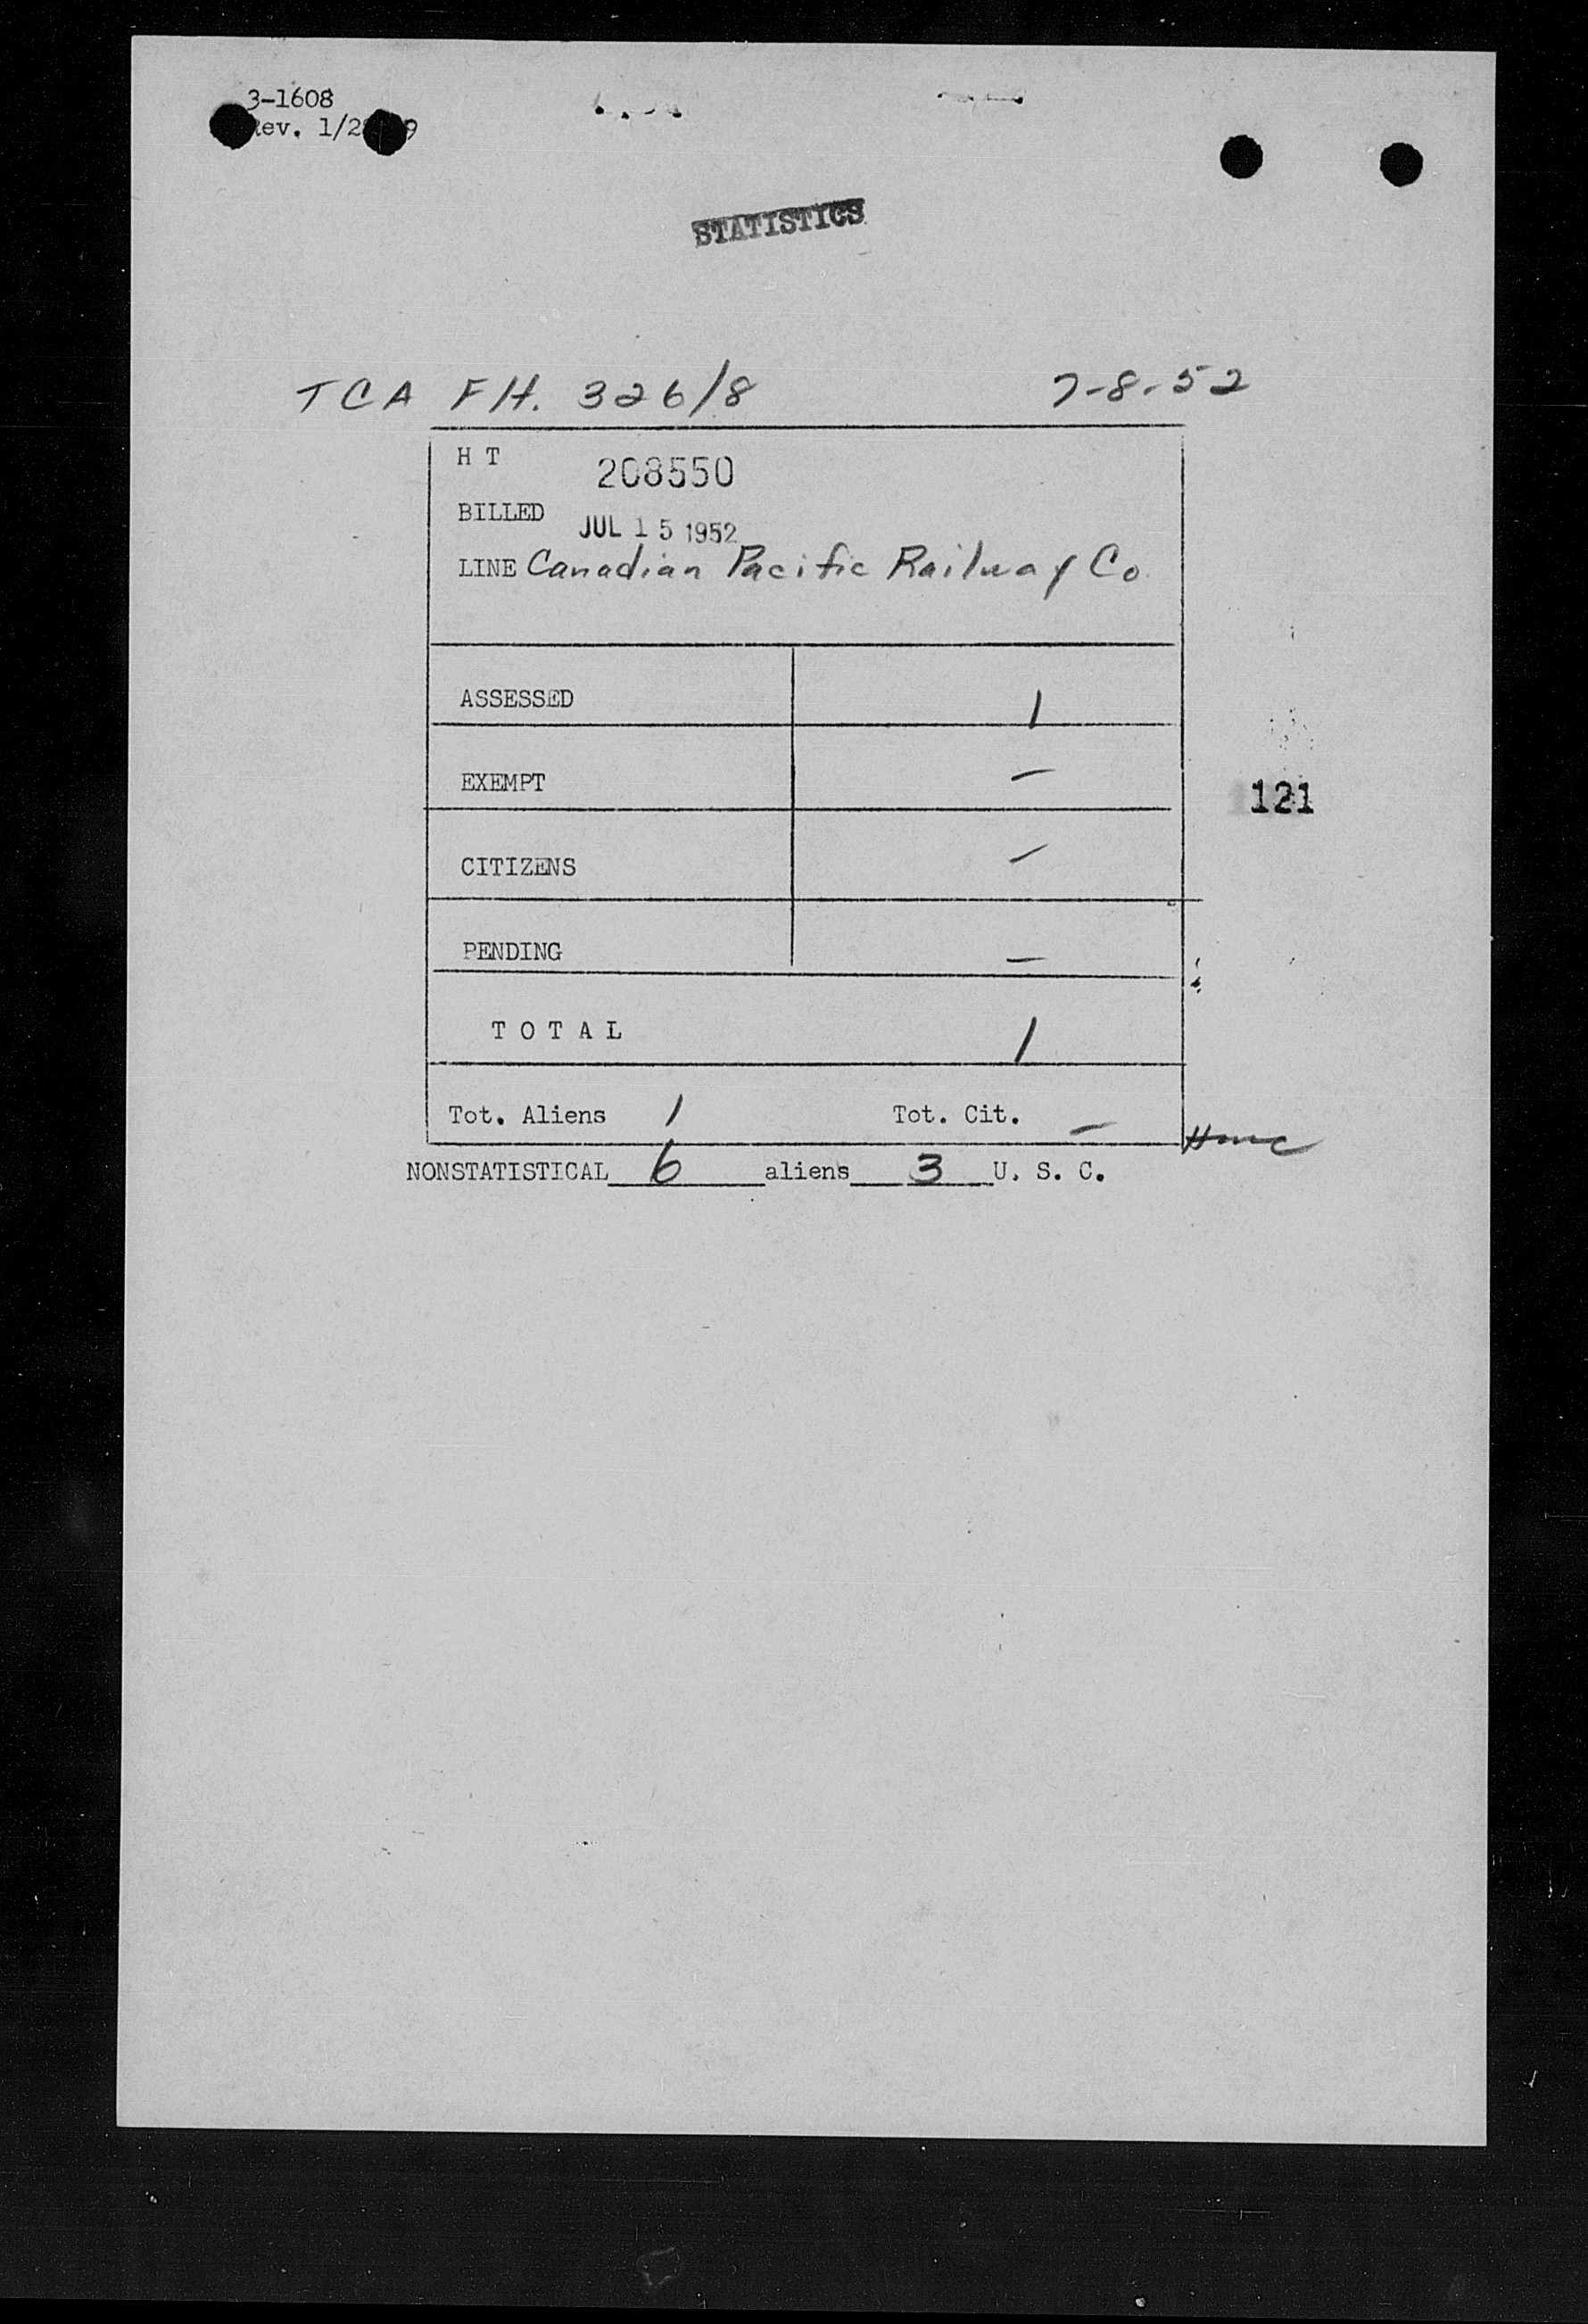 3-1608
Rev. 1/2
STATISTICS
TCA FH. 326/8 7-8-52
H T 208550
BILLED JUL 15 1952
LINE Canadian Pacific Railway Co.
ASSESSED 1
EXEMPT —
CITIZENS —
121
PENDING —
T O T A L 1
Tot. Aliens 1 Tot. Cit. —
NONSTATISTICAL 6 aliens 3 U. S. C.